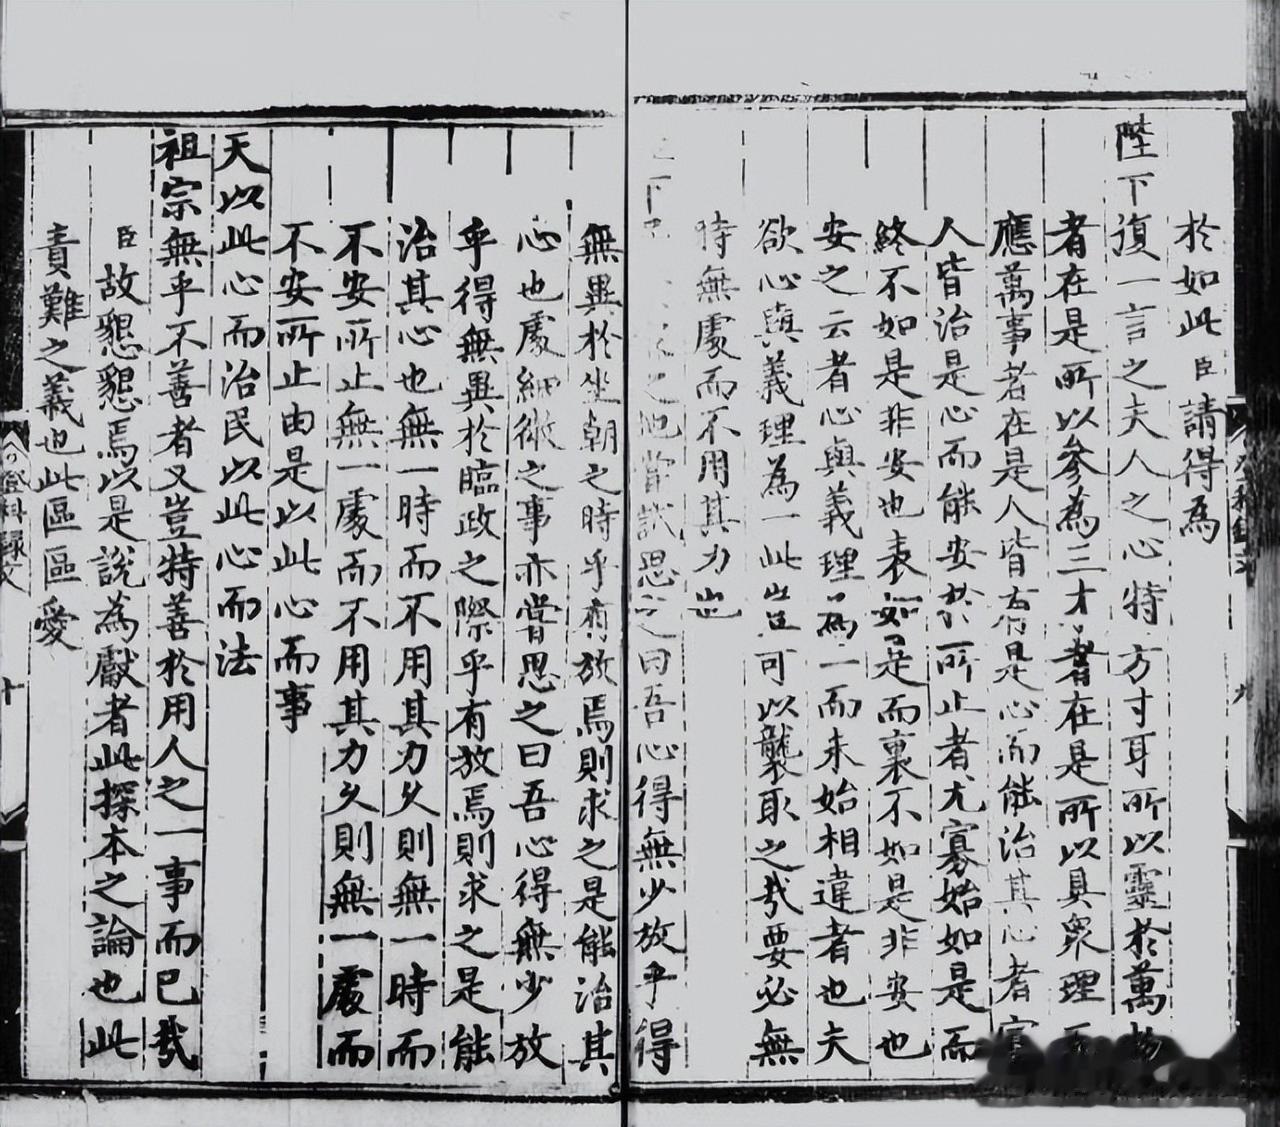 於如此臣請得為
陛下復一言之夫人之心特方寸耳所以靈於萬物
者在是所以參為三才者在是所以具衆理而
應萬事者在是人皆有是心而能治其心者寡
人皆治是心而能安於所止者尤寡始如是而
終不如是非安也表如是而裏不如是非安也
安之云者心與義理為一而未始相違者也夫
欲心與義理為一此豈可以襲取之㦲要必無
時無處而不用其力也
下 之地嘗試思之曰吾心得無少放乎得
無異於坐朝之時乎有放焉則求之是能治其
心也處細微之事亦嘗思之曰吾心得無少放
乎得無異於臨政之際乎有放焉則求之是能
治其心也無一時而不用其力久則無一時而
不安所止無一處而不用其力久則無一處而
不安所止由是以此心而事
天以此心而治民以此心而法
祖宗無乎不善者又豈特善於用人之一事而已㦲
臣故懇懇焉以是說為獻者此探本之論也此
責難之義也此區區愛
登科録文
十
九